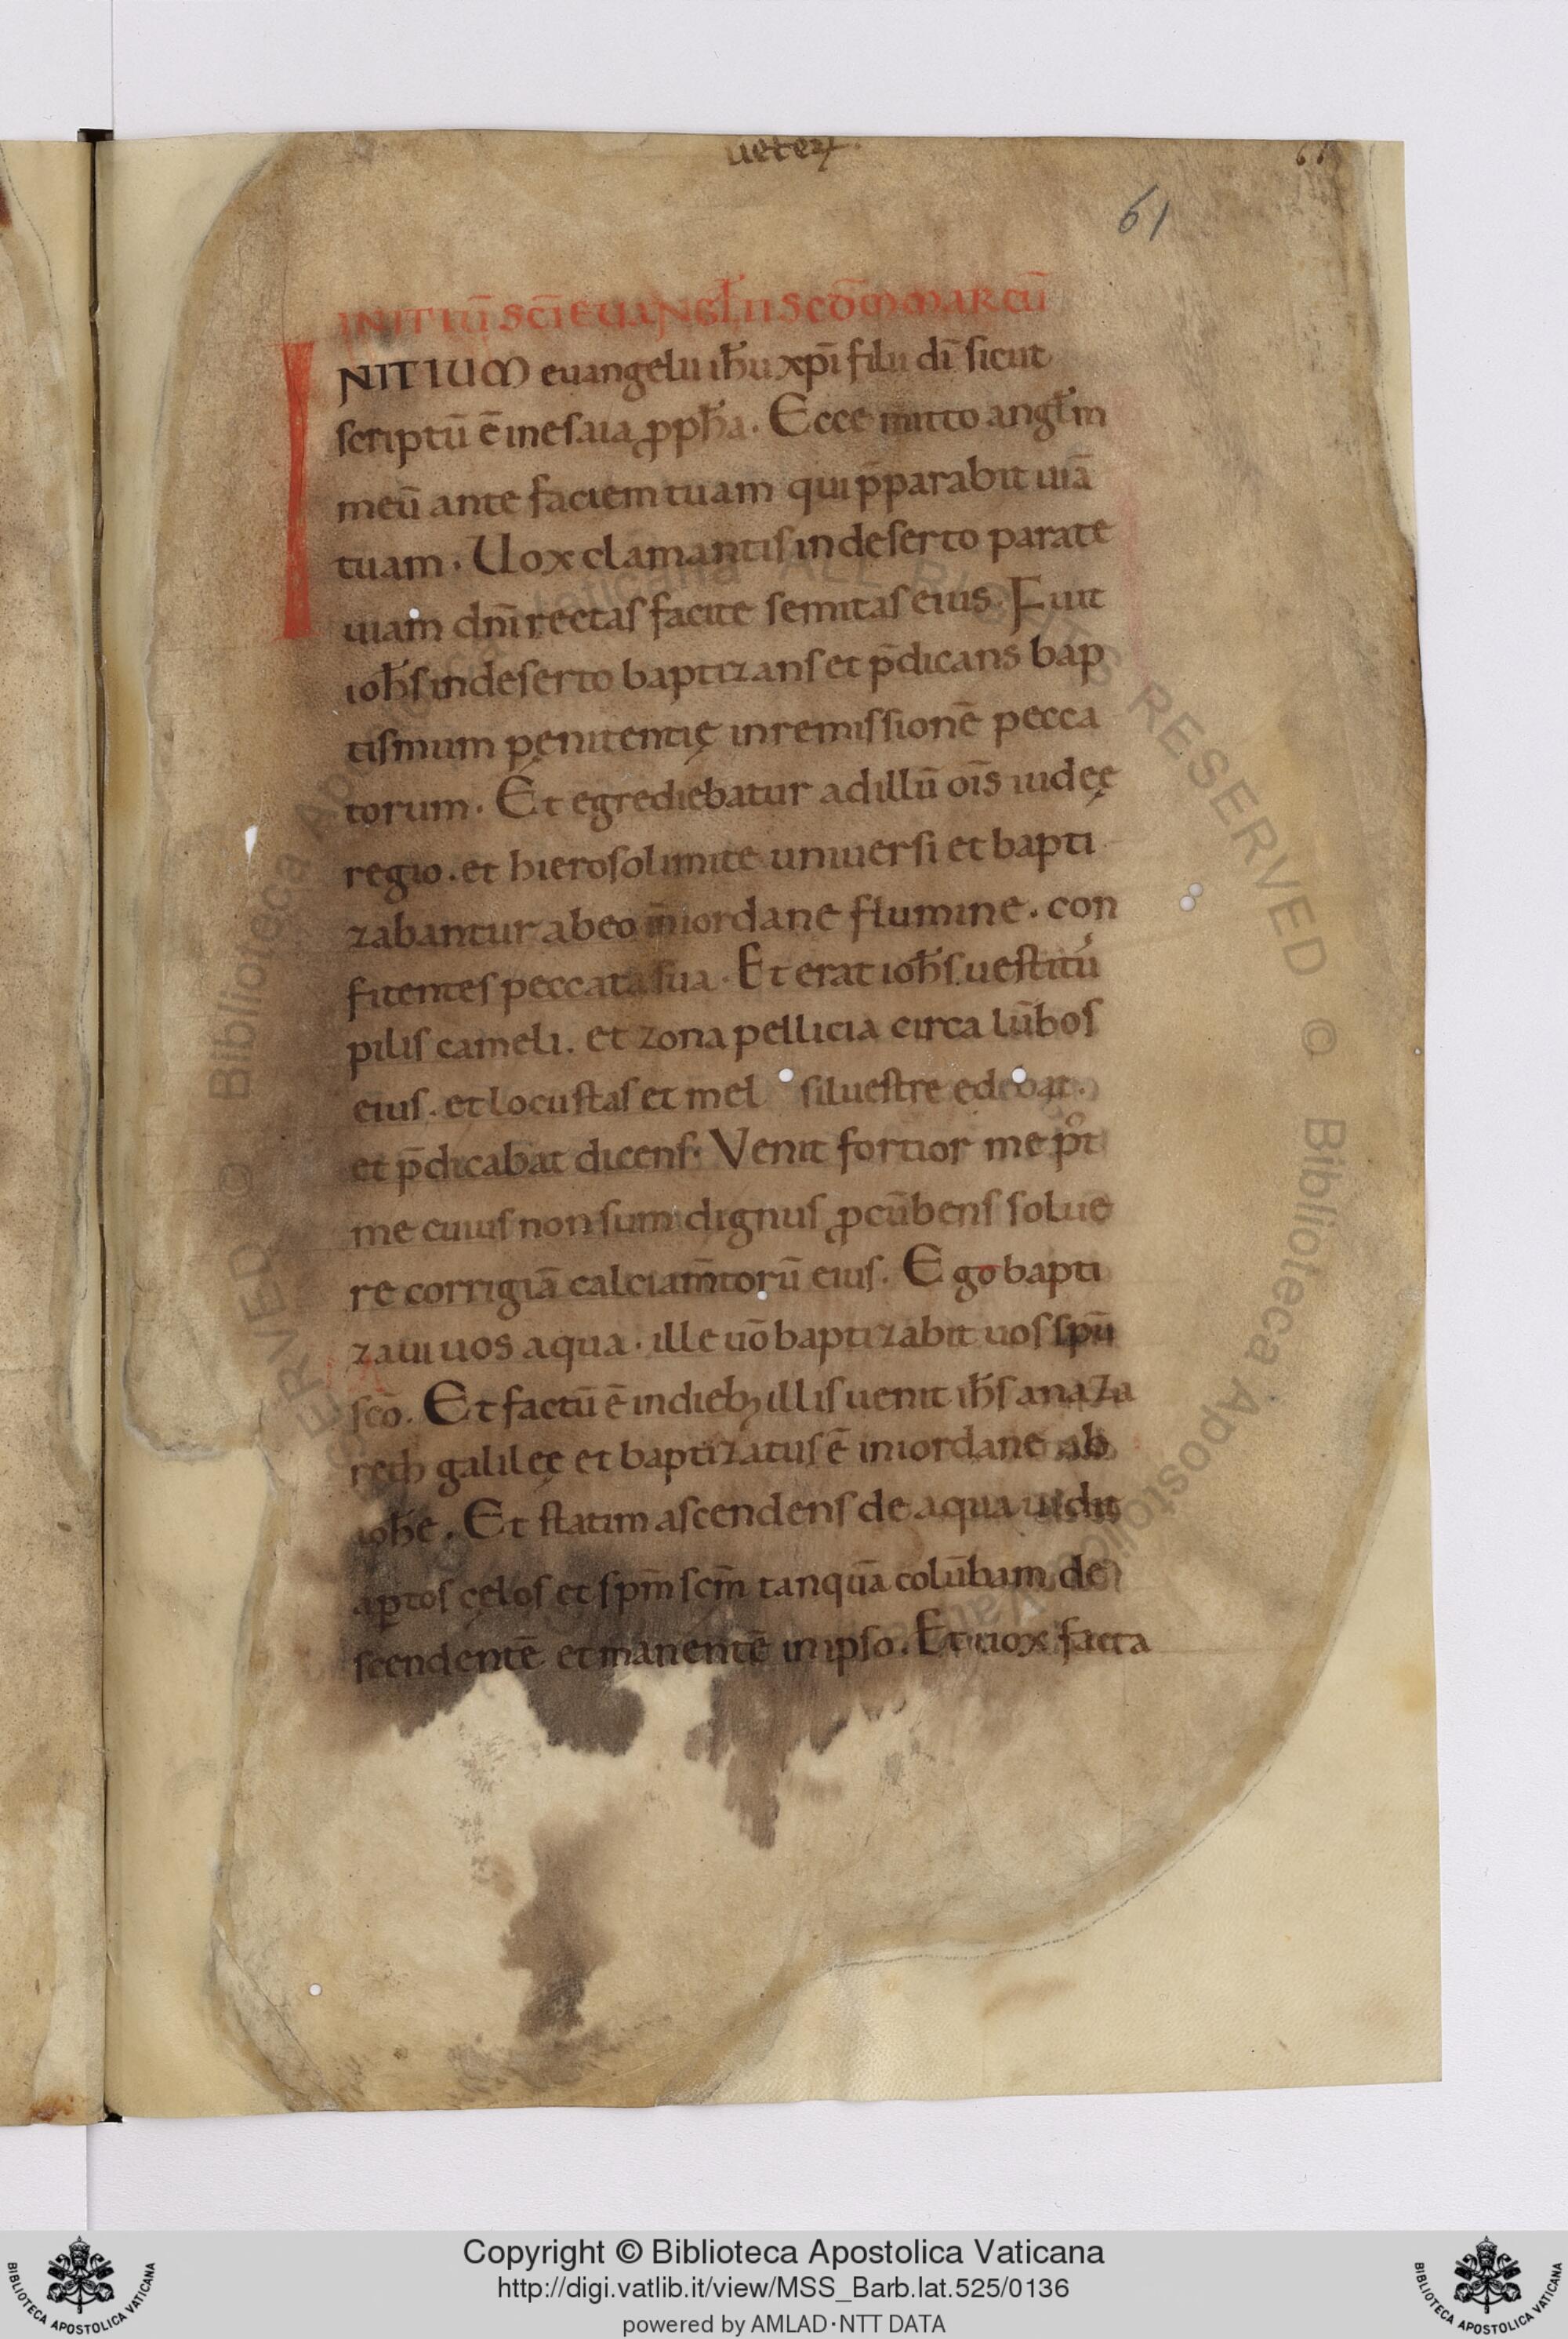 ueteꝝ
61
61
INITIŪ SC̄I EUANGL̄II SCD̄M MARCŪ
INITIUM euangelii ih̄u xp̄i filii dī sicut
scriptū ē in esaia ꝓph̄a. Ecce mitto angl̄m
meū ante faciem tuam qui p̄parabit uiā
tuam. Uox clamantis in deserto parate
uiam dn̄i rectas facite semitas eius. Fuit
ioh̄s in deserto baptizans et p̄dicans bap
tismum penitentię in remissionē pecca
torum. Et egrediebatur ad illū oīs iudeę
regio. et hierosolimite uniuersi et bapti
zabantur ab eo in iordane flumine. con
fitentes peccata sua. Et erat ioh̄s uestitū
pilis cameli. et zona pellicia circa lūbos
eius. et locustas et mel siluestre edebat.
et p̄dicabat dicens. Venit fortior me p̊t
me cuius non sum dignus ꝓcūbens solue
re corrigiā calciam̄torū eius. Ego bapti
zaui uos aqua. ille uō baptizabit uos spū
sc̄o. Et factū ē in dieb; illis uenit ih̄s a naza
reth galileę et baptizatus ē in iordane ab
ioh̄e. Et statim ascendens de aqua uidit
aꝑtos cęlos et spm̄ scm̄ tanquā colūbam de
scendentē et manentē in ipso. Et uox facta
© Biblioteca Apostolica Vaticana ALL RIGHTS RESERVED © Biblioteca Apostolica Vaticana
Copyright © Biblioteca Apostolica Vaticana
http://digi.vatlib.it/view/MSS_Barb.lat.525/0136
powered by AMLAD·NTT DATA
BIBLIOTECA APOSTOLICA VATICANA
BIBLIOTECA APOSTOLICA VATICANA